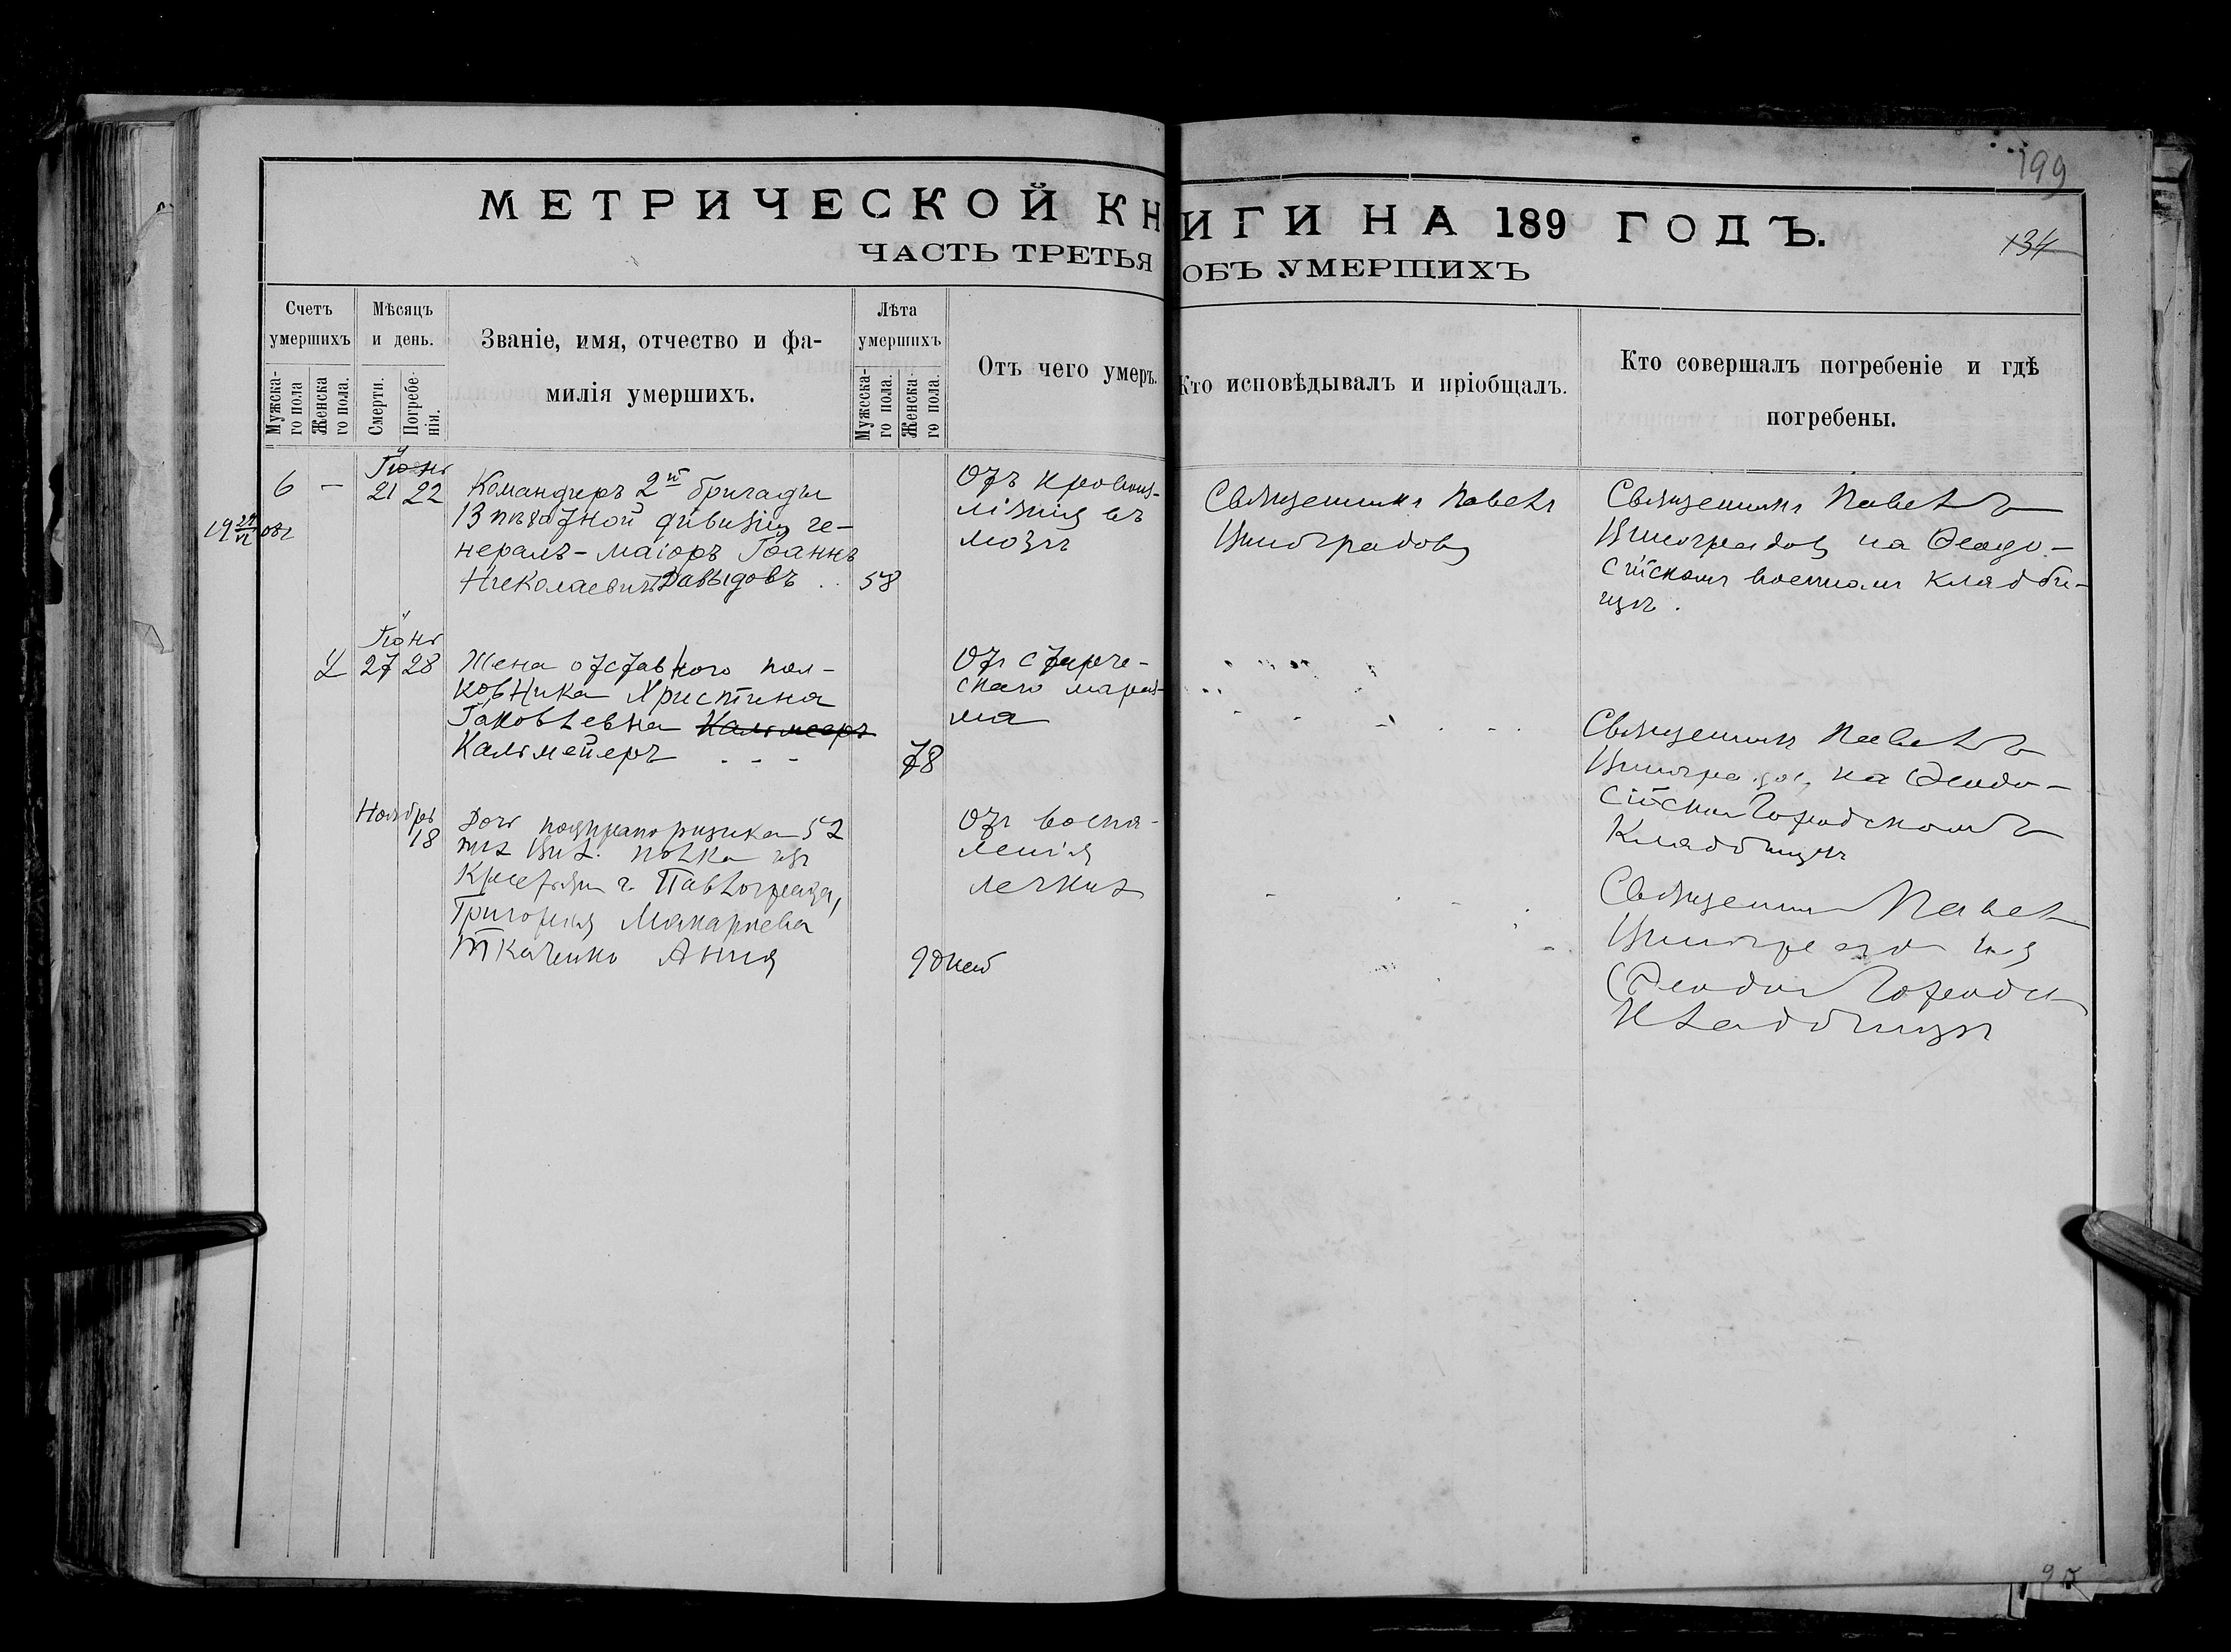 199
МЕТРИЧЕСКОЙ КНИГИ НА 189 ГОДЪ.
134
ЧАСТЬ ТРЕТЬЯ ОБЪ УМЕРШИХЪ
Счетъ умершихъ
Мужска-го пола
Женска го пола.
Мѣсяцъ и день.
Смерти.
Погребе-нія.
Званіе, имя, отчество и фа-
милія умершихъ.
Лѣта умершихъ
Мужеска-го пола.
Женска-го пола.
Отъ чего умеръ.
Кто исповѣдывалъ и пріобщалъ.
Кто совершалъ погребеніе и гдѣ
погребены.
Іюнь
6 - 21 22
Командиръ 2й бригады
13 пѣхотной дивизіи ге-
нералъ-маіоръ Іоаннъ
Николаевичъ Давыдовъ 58
Отъ кровоиз-
лізнія въ
мозгъ
Священникъ Павелъ
Виноградовъ
Священникъ Павелъ
Виноградовъ на Ѳеодо-
сійскомъ военномъ кладби-
щѣ.
Іюнь
2 27 28
Жена отставного пол-
ковника Христина
Іаковлевна Кальмееръ
Кальмейеръ - - - 78
Отъ старче-
скаго мараз-
ма
Священникъ Павелъ
Виноградовъ на Ѳеодо-
сійском Городскомъ
Кладбищѣ
Ноябрь
18
Дочь подпрапорщика 52
пѣх Вил. полка изъ
г. Павлограда,
Григорія Макарiева
Ткаченко Анна 9 дней
Отъ воспа-
ленія
легких
Священник Павел
Виноградов на
Ѳеодос Городск
Кладбищѣ